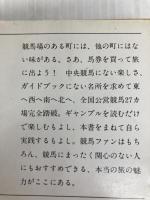 競馬場のある町には、他の町にはな
い味がある。さあ、馬券を買って旅
に出よう！　中央競馬にない楽しさ、
ガイドブックにない名所を求めて東
へ西へ南へ北へ、全国公営競馬27カ
場完全踏破。ギャンブルを読むだけ
で楽しむもよし、本書をまねて自ら
実践するもよし。競馬ファンはもち
ろん、競馬にまったく関心のない人
にもおすすめできる、本当の旅の魅
力がここにある。